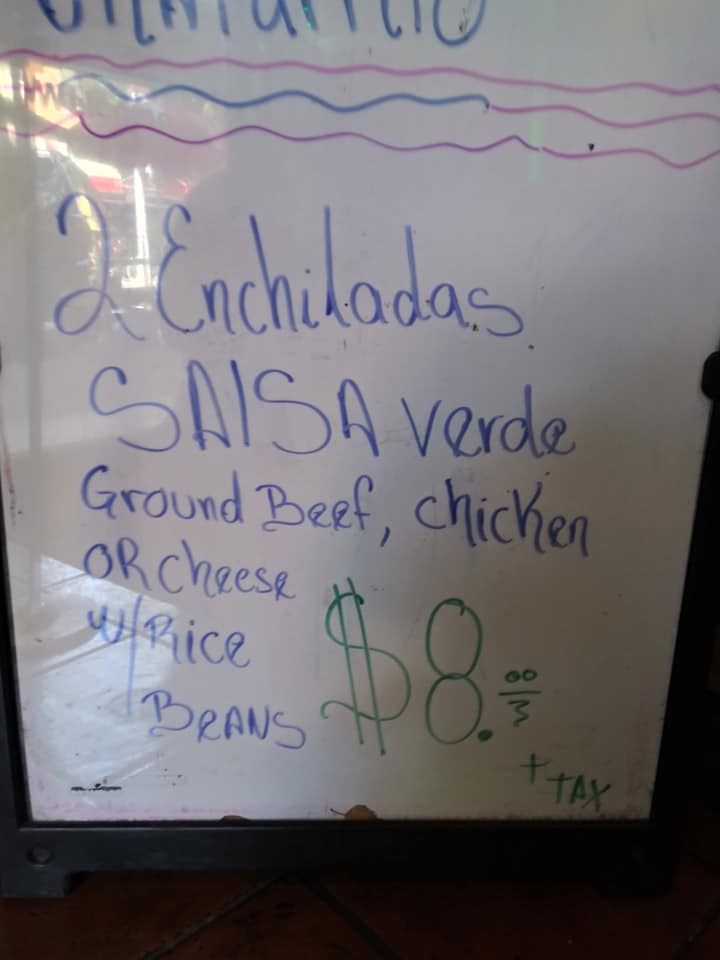 2 Enchiladas
SAlSA verde
Ground Beef, chicken
OR cheese
w/ Rice
BeANS
$8.00
+ TAX